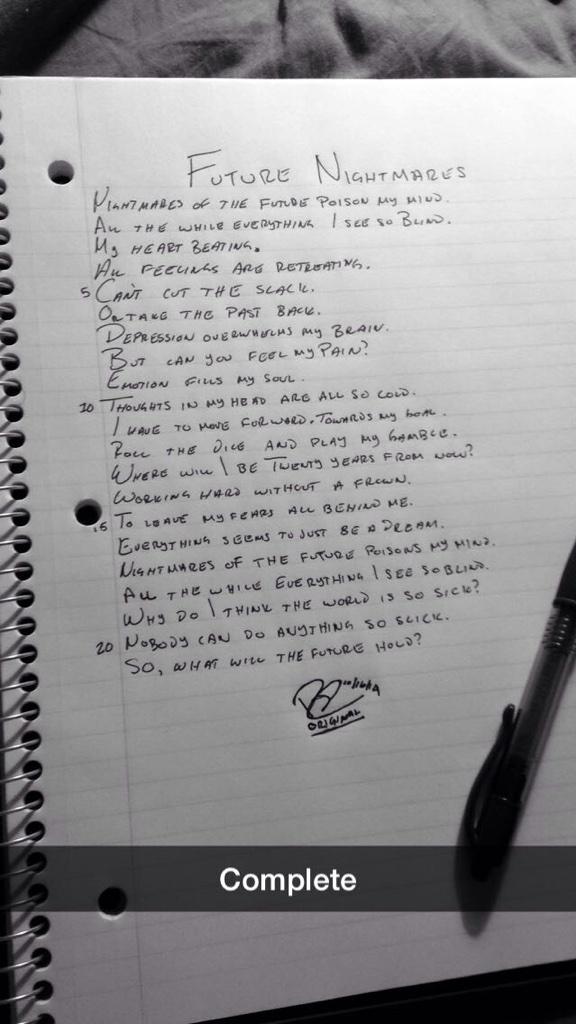 Future Nightmares
Nightmares of the future poison my mind.
All the while everything I see so blind.
My heart beating.
All feelings are retreating.
5 Can't cut the slack.
Or take the past back.
Depression overwhelms my brain.
But can you feel my pain?
Emotion fills my soul.
10 Thoughts in my head are all so cold.
I have to move forward. Towards my goal.
Roll the dice and play my gamble.
Where will I be twenty years from now?
Working hard without a frown.
15 To leave my fears all behind me.
Everything seems to just be a dream.
Nightmares of the future poisons my mind.
All the while everything I see so blind.
Why do I think the world is so sick?
20 Nobody can do anything so slick.
So, what will the future hold?
Original
Complete